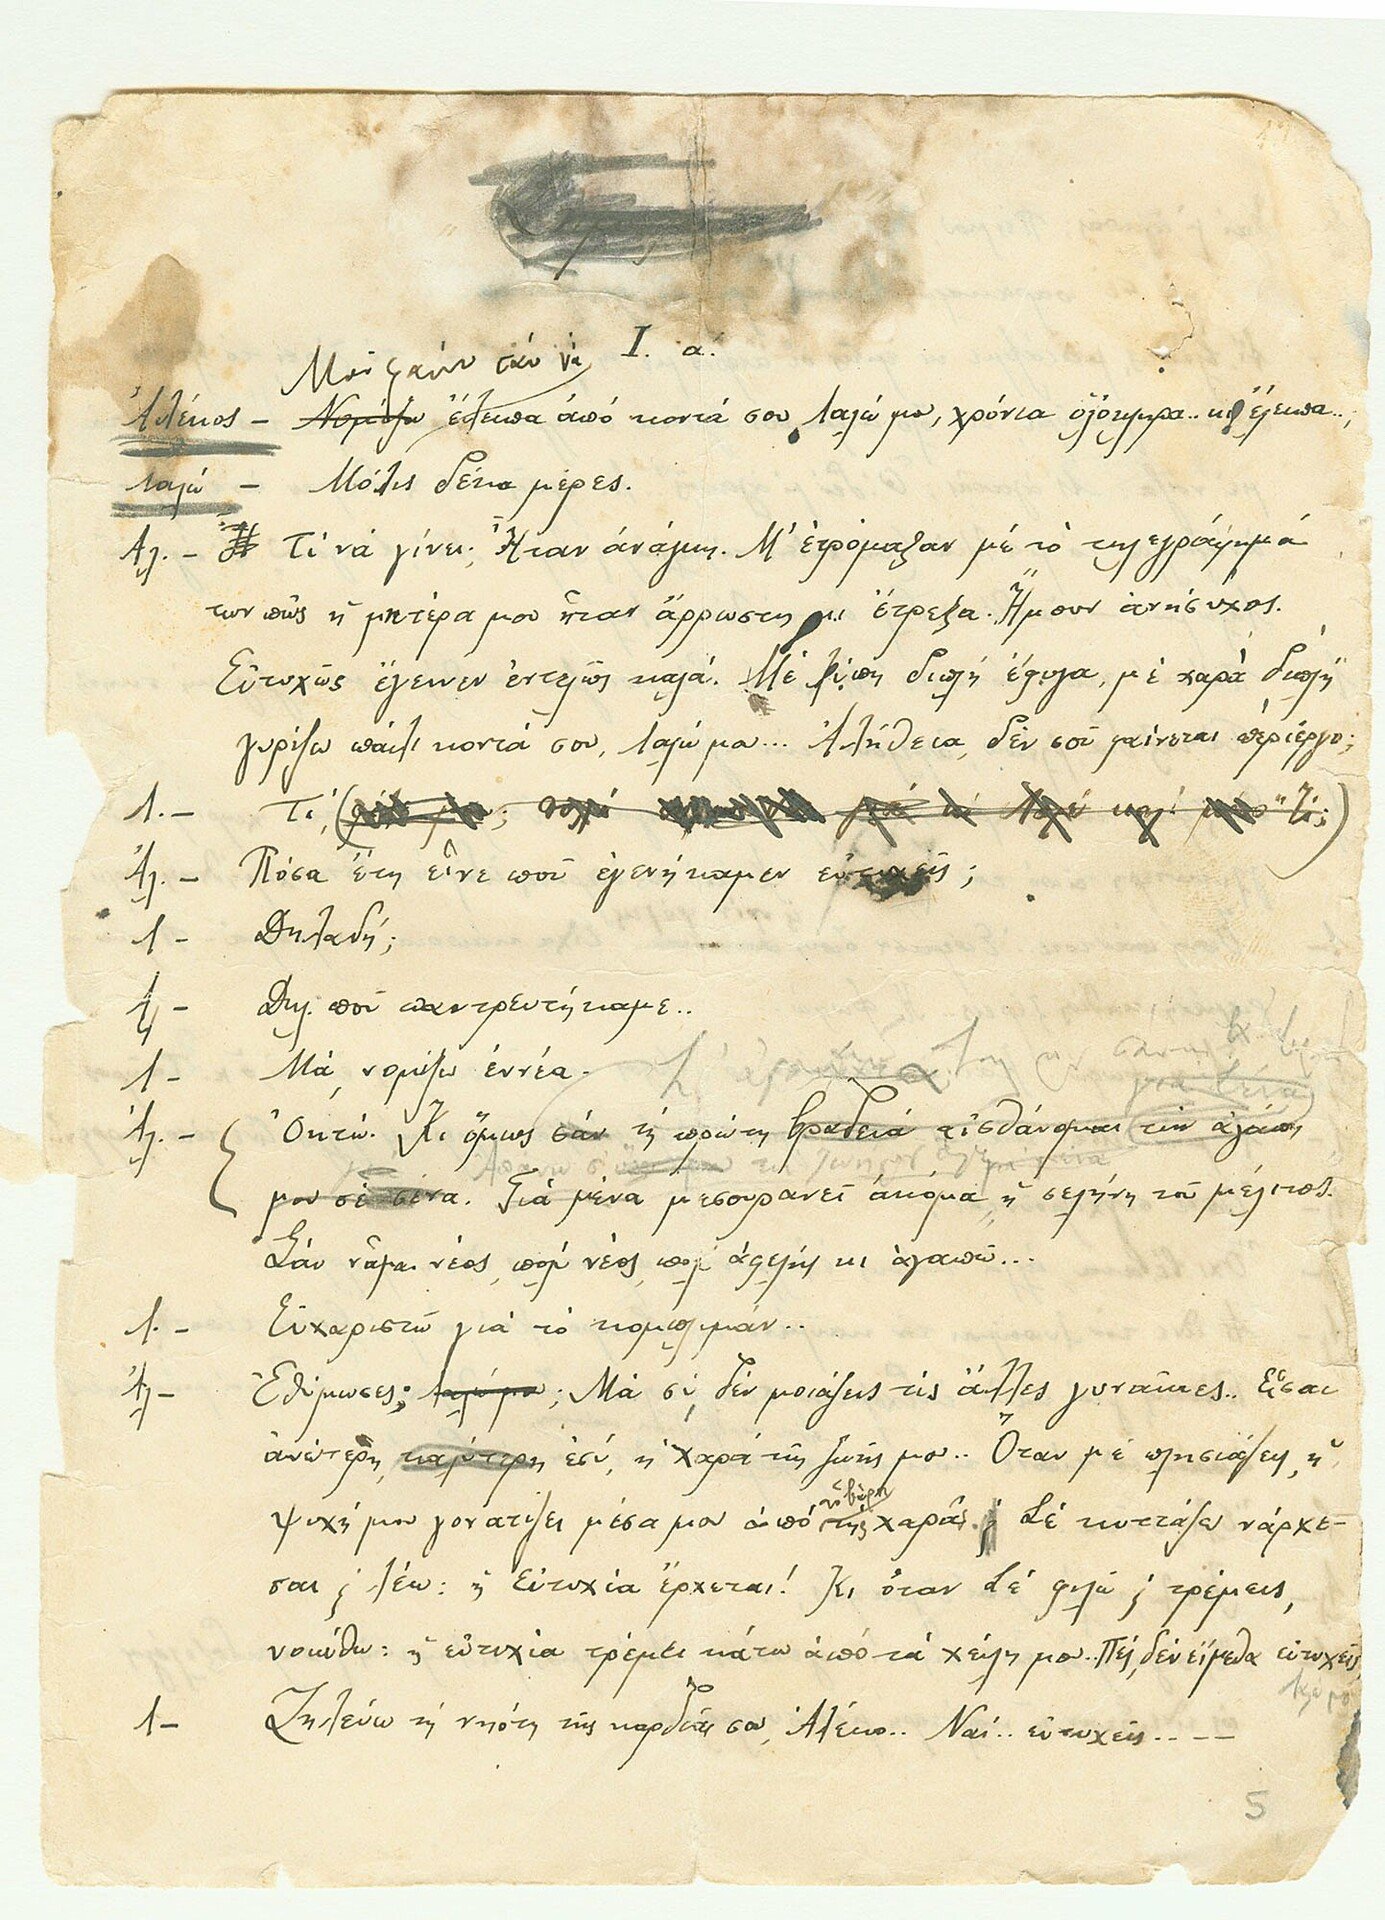 Ι. α.
Μοῦ φαίνεται σὰν νὰ
Ἀλέκος – Νομίζω ἔλειπα ἀπὸ κοντά σου, Λαλώ μου, χρόνια ὁλόκληρα.. κι ἔλειπα..;
Λαλώ – Μόλις δέκα μέρες.
Ἀλ. – Τί νὰ γίνει; Ἦταν ἀνάγκη. Μ' ἐτρόμαξαν μὲ τὸ τηλεγράφημά
των πῶς ἡ μητέρα μου ἦταν ἄρρωστη κι ἔτρεξα. Ἤμουν ἀνήσυχος.
Εὐτυχῶς ἔγεινεν ἐντελῶς καλά. Μὲ λύπη διπλῆ ἔφυγα, μὲ χαρὰ διπλῆ
γυρίζω πάλι κοντά σου, Λαλώ μου... Ἀλήθεια, δέν σοῦ φαίνεται περίεργο;
Λ. – Τί;
Ἀλ. – Πόσα ἔτη εἶνε ποῦ ἐγενήκαμεν εὐτυχεῖς;
Λ – Δηλαδή;
Ἀλ – Δηλ. ποῦ παντρευτήκαμε..
Λ – Μά, νομίζω ἐννέα.
Ἀλ. – Ὀκτώ. Κι ὅμως σὰν τὴ πρώτη βραδειὰ αἰσθάνομαι τὴν ἀγάπη
μου σὲ σένα. Γιὰ μένα μεσουρανεῖ ἀκόμα ἡ σελήνη τοῦ μέλιτος.
Σὰν νἆμαι νέος, πολὺ νέος, πολὺ ἀφελής κι ἀγαπῶ...
Λ. – Εὐχαριστῶ γιὰ τὸ κομπλιμάν..
Ἀλ – Ἐθύμωσες; Λαλώ μου; Μὰ σύ, δὲν μοιάζεις τὶς ἄλλες γυναῖκες.. Εἶσαι
ἀνώτερη, καλύτερη ἐσύ, ἡ χαρὰ τῆς ζωῆς μου.. Ὅταν μὲ πλησιάζεις, ἡ
τὸ βάρος
ψυχή μου γονατίζει μέσα μου ἀπό τῆς χαρᾶς. Σὲ κυττάζω νἄρχε-
σαι λέω: ἡ Εὐτυχία ἔρχεται! Κι ὅταν Σὲ φιλῶ τρέμεις,
νοιώθω: ἡ εὐτυχία τρέμει κάτω ἀπὸ τὰ χείλη μου.. Πές, δέν εἴμεθα εὐτυχεῖς,
Λαλώ μου
Λ – Ζηλεύω τὴ νηότη τῆς καρδιᾶς σου, Ἀλέκο.. Ναί.. εὐτυχεῖς....
5